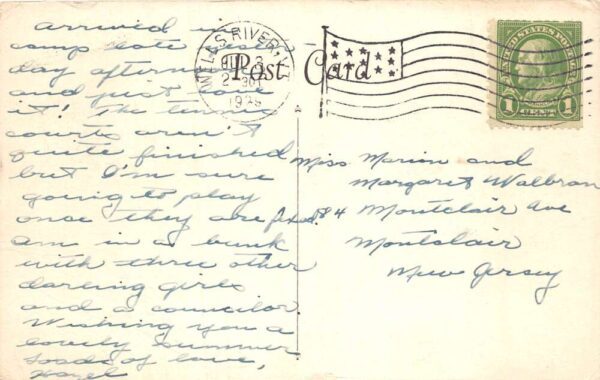 arrived in
camp late yester
day afternoon
and just love
it! The tennis
courts aren't
quite finished
but I'm sure
going to play
once they are fixed.
Am in a bunk
with three other
darling girls
and a councilor
Wishing you a
lovely summer
Loads of love,
Hazel
WELLS RIVER, VT.
2 30 P
Post Card
UNITED STATES POSTAGE
1 CENT 1
Miss Marion and
Margaret Walbran
84 Montclair Ave
Montclair
New Jersey